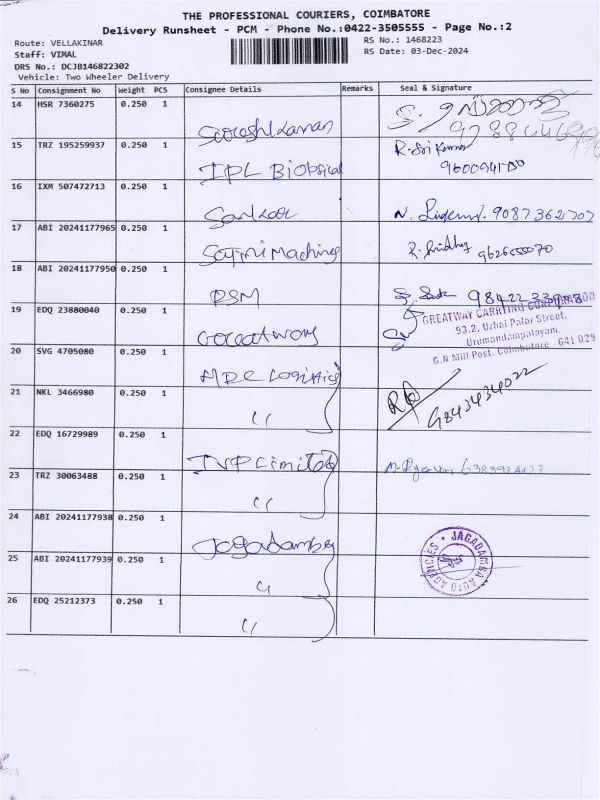 THE PROFESSIONAL COURIERS, COIMBATORE
Delivery Runsheet - PCM - Phone No.:0422-3505555 - Page No.:2
Route: VELLAKINAR RS No.: 1468223
Staff: VIMAL RS Date: 03-Dec-2024
DRS No.: DCJB146822302
Vehicle: Two Wheeler Delivery
S No Consignment No Weight PCS Consignee Details Remarks Seal & Signature
14 HSR 7360275 0.250 1
15 TRZ 195259937 0.250 1 IPL R. Sri Kumar
16 IXM 507472713 0.250 1 9087362707
17 ABI 20241177965 0.250 1 Machines 9626550070
18 ABI 20241177950 0.250 1 PSM
19 EDQ 23880040 0.250 1 GREATWAY CARRYING CORPORATION
93.2, Uzhai Palar Street,
Urumandampalayam,
G.N Mill Post, Coimbatore 641 029
20 SVG 4705080 0.250 1 MDC Logistics
21 NKL 3466980 0.250 1 " 9843434022
22 EDQ 16729989 0.250 1 TVP Limited
23 TRZ 30063488 0.250 1 "
24 ABI 20241177938 0.250 1 Jagadamba JAGADAMBA AUTO AGENCIES
25 ABI 20241177939 0.250 1 "
26 EDQ 25212373 0.250 1 "